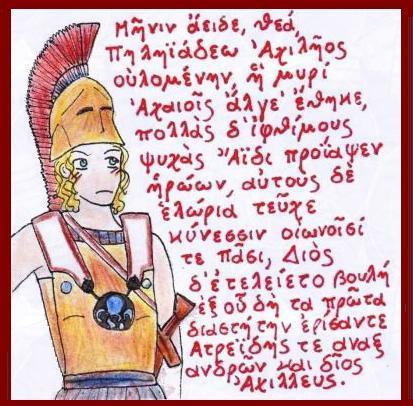 Μῆνιν ἄειδε, θεά,
Πηληϊάδεω Ἀχιλῆος
οὐλομένην, ἣ μυρί
Ἀχαιοῖς ἄλγε' ἔθηκε,
πολλὰς δ' ἰφθίμους
ψυχὰς Ἄϊδι προΐαψεν
ἡρώων, αὐτους δὲ
ἑλώρια τεῦχε
κύνεσσιν οἰωνοῖσί
τε πᾶσι, Διὸς
δ' ἐτελείετο βουλή
ἐξ οὗ δὴ τα πρῶτα
διαστή την ἐρίσαντε
Ατρεΐδης τε αναξ
ανδρῶν και δῖος
Ἀχιλλευς.